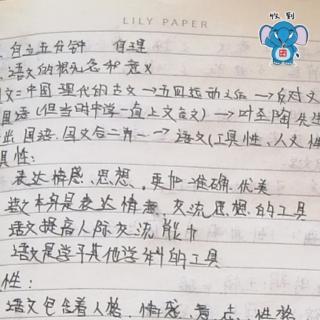 LILY PAPER
收到
自立五分钟 自理
语文的概念和意义
文=中国现代的古文→五四运动之后→反对文
国语(但当时中学一直上文言文)→叶圣陶先生
出 国语、国文合二为一→语文(工具性、人文性
具性:
表达情感、思想、更加准确、优美
语文本身是表达情意、交流思想的工具
语文提高人际交流能力
语文是学习其他学科的工具
性:
语文包含着人格、情感、意、点、性格